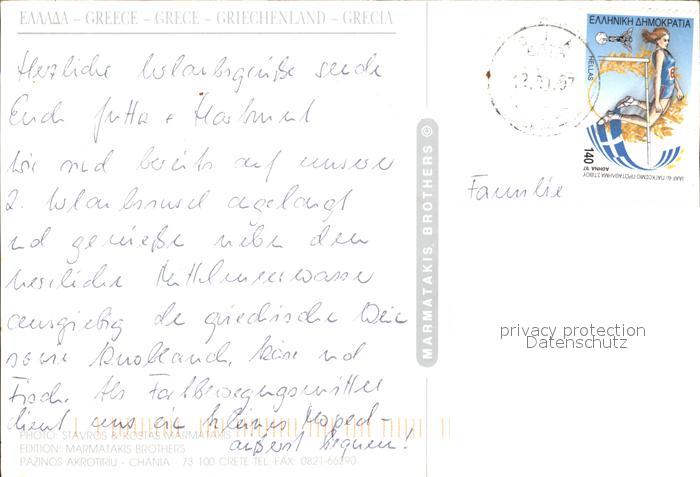 ΕΛΛΑΔΑ – GREECE – GRECE – GRIECHENLAND – GRECIA
Herzliche Urlaubsgrüße sende
Euch Jutta + Hartmut
Wir sind bereits auf unserer
2. Urlaubsinsel angelangt
und genieße neben dem
herrliche Mittelmeerwasser
ausgiebig de griechische Wein
sowie Knoblauch, Käse und
Fisch. Als Fortbewegungsmittel
dient uns ein kleines Moped -
äußerst bequem!
PHOTO: STAVROS & KOSTAS MARMATAKIS
EDITION: MARMATAKIS BROTHERS
PAZINOS AKROTIRIU - CHANIA - 73 100 CRETE TEL-FAX: 0821-66290
MARMATAKIS BROTHERS ©
ΕΛΛΗΝΙΚΗ ΔΗΜΟΚΡΑΤΙΑ
HELLAS
140
ΑΘΗΝΑ '97
Familie
privacy protection
Datenschutz